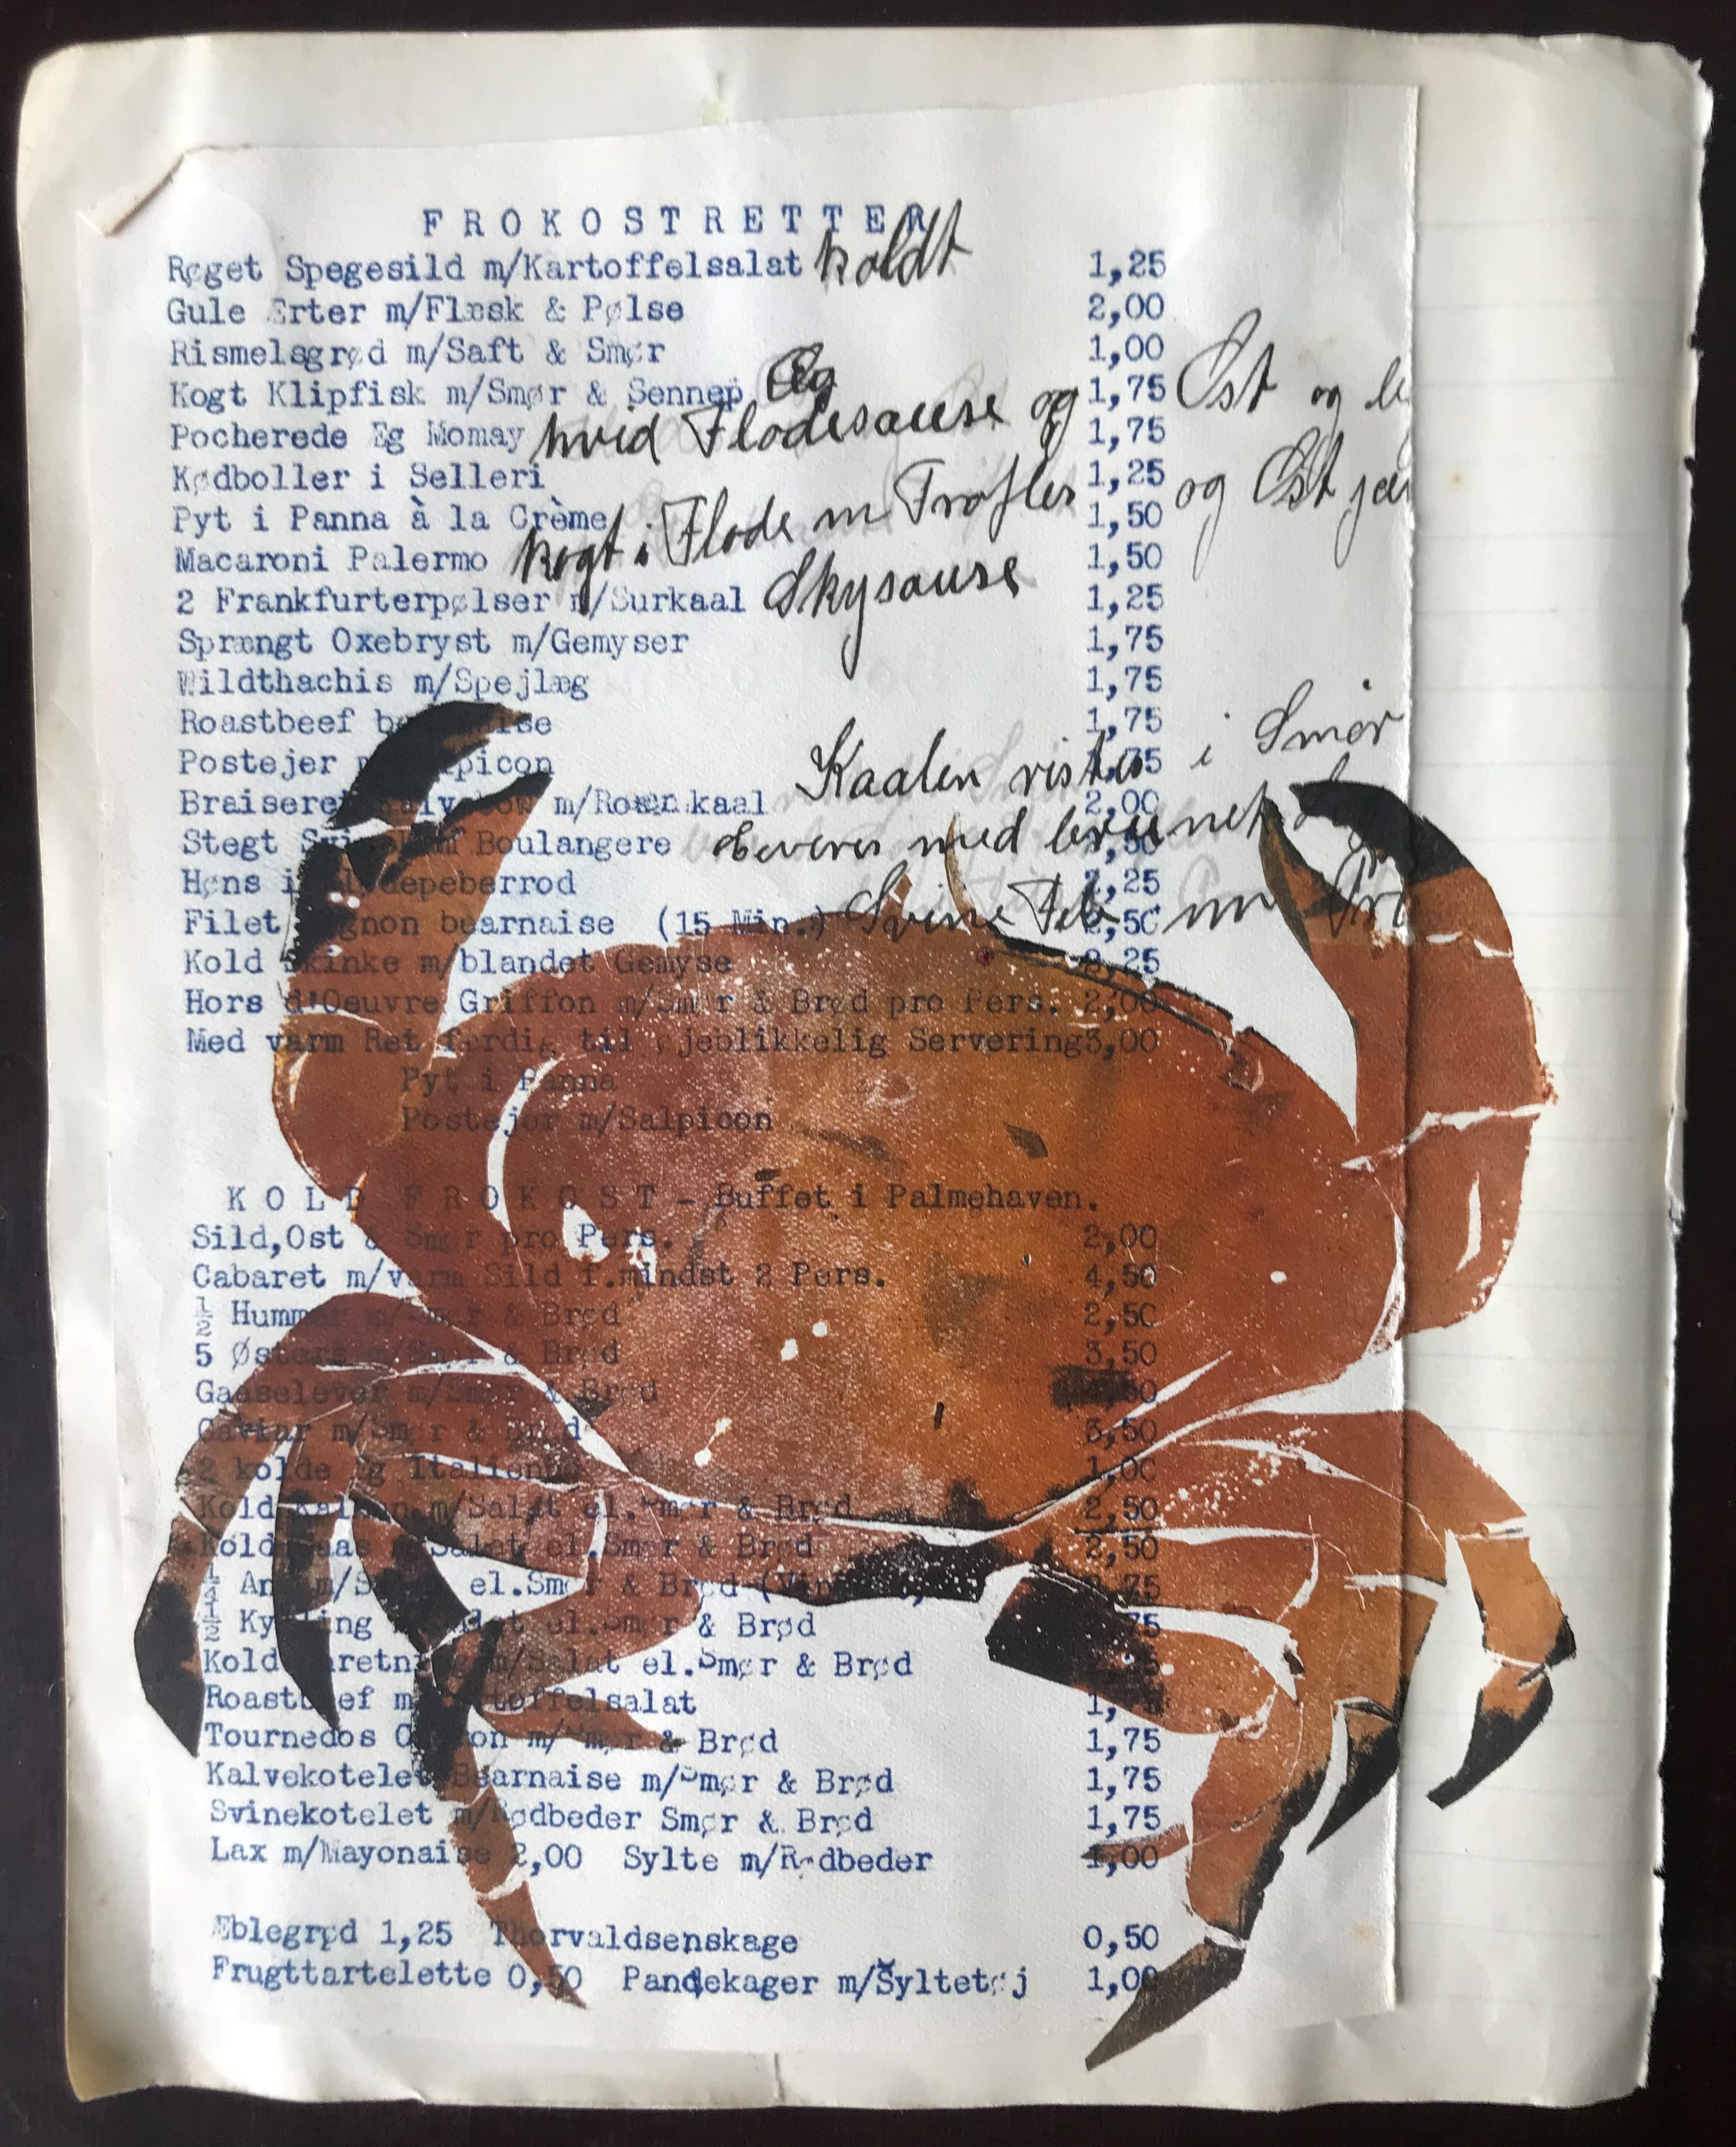 FROKOSTRETTER
Røget Spegesild m/Kartoffelsalat koldt 1,25
Gule Ærter m/Flæsk & Pølse 2,00
Rismelsgrød m/Saft & Smør 1,00
Kogt Klipfisk m/Smør & Sennep Æg 1,75 Ost og
Pocherede Eg Momay hvid Flødesause og 1,75
Kødboller i Selleri 1,25 og Ost
Pyt i Panna à la Crème kogt i Fløde m Trøfler 1,50
Macaroni Palermo 1,50
2 Frankfurterpølser m/Surkaal Skysause 1,25
Sprængt Oxebryst m/Gemyser 1,75
Wildthachis m/Spejlæg 1,75
Roastbeef 1,75
Postejer Kaalen ristes i Smør
m/Rosenkaal 2,00
Stegt Boulangere med
Høns i
Filet bearnaise (15 Min.) Svine 2,50
Kold Skinke m/blandet Gemyse 2,25
Hors d'Oeuvre Griffon m/Smør & Brød pro Pers. 2,00
Med varm Ret færdig til øjeblikkelig Servering 3,00
Pyt i Panna
Postejer m/Salpicon
KOLD FROKOST - Buffet i Palmehaven.
Sild,Ost & Smør pro Pers. 2,00
Cabaret m/varm Sild f.mindst 2 Pers. 4,50
½ Hummer m/Smør & Brød 2,50
5 Østers m/Smør & Brød 3,50
Gaaselever m/Smør & Brød
Caviar m/Smør & Brød 3,50
2 kolde Eg Italienne 1,00
Kold Kalkun m/Salat el.Smør & Brød 2,50
Kold Gaas m/Salat el.Smør & Brød 2,50
el.Smør & Brød
½ Kylling el.Smør & Brød
Kold m/Salat el.Smør & Brød
Roastbeef m/Kartoffelsalat
Tournedos m/Smør & Brød 1,75
Kalvekotelet Bearnaise m/Smør & Brød 1,75
Svinekotelet m/Rødbeder Smør & Brød 1,75
Lax m/Mayonaise 2,00 Sylte m/Rødbeder 1,00
Æblegrød 1,25 Thorvaldsenskage 0,50
Frugttartelette 0,50 Pandekager m/Syltetøj 1,00